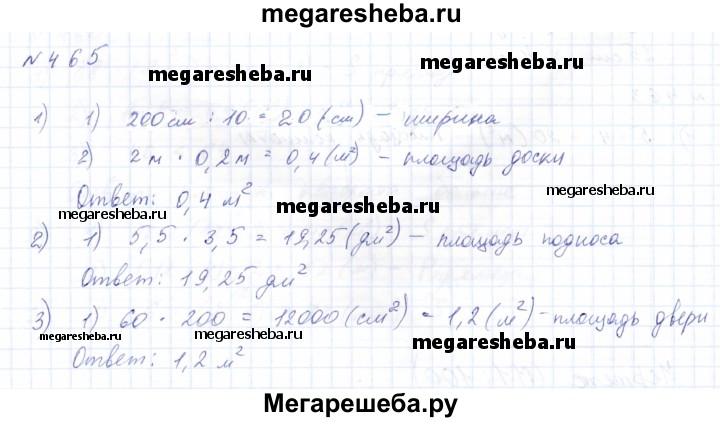 megaresheba.ru
№465
megaresheba.ru megaresheba.ru
1) 1) 200см : 10 = 20 (см) – ширина
megaresheba.ru
2) 2 м · 0,2 м = 0,4 (м²) – площадь доски
megaresheba.ru
Ответ: 0,4 м²
megaresheba.ru megaresheba.ru
2) 1) 5,5 · 3,5 = 19,25 (дм²) – площадь подноса
Ответ: 19,25 дм²
3) 1) 60 · 200 = 12000 (см²) = 1,2 (м²) - площадь двери
megaresheba.ru megaresheba.ru megaresheba.ru
Ответ: 1,2 м²
Мегарешеба.ру